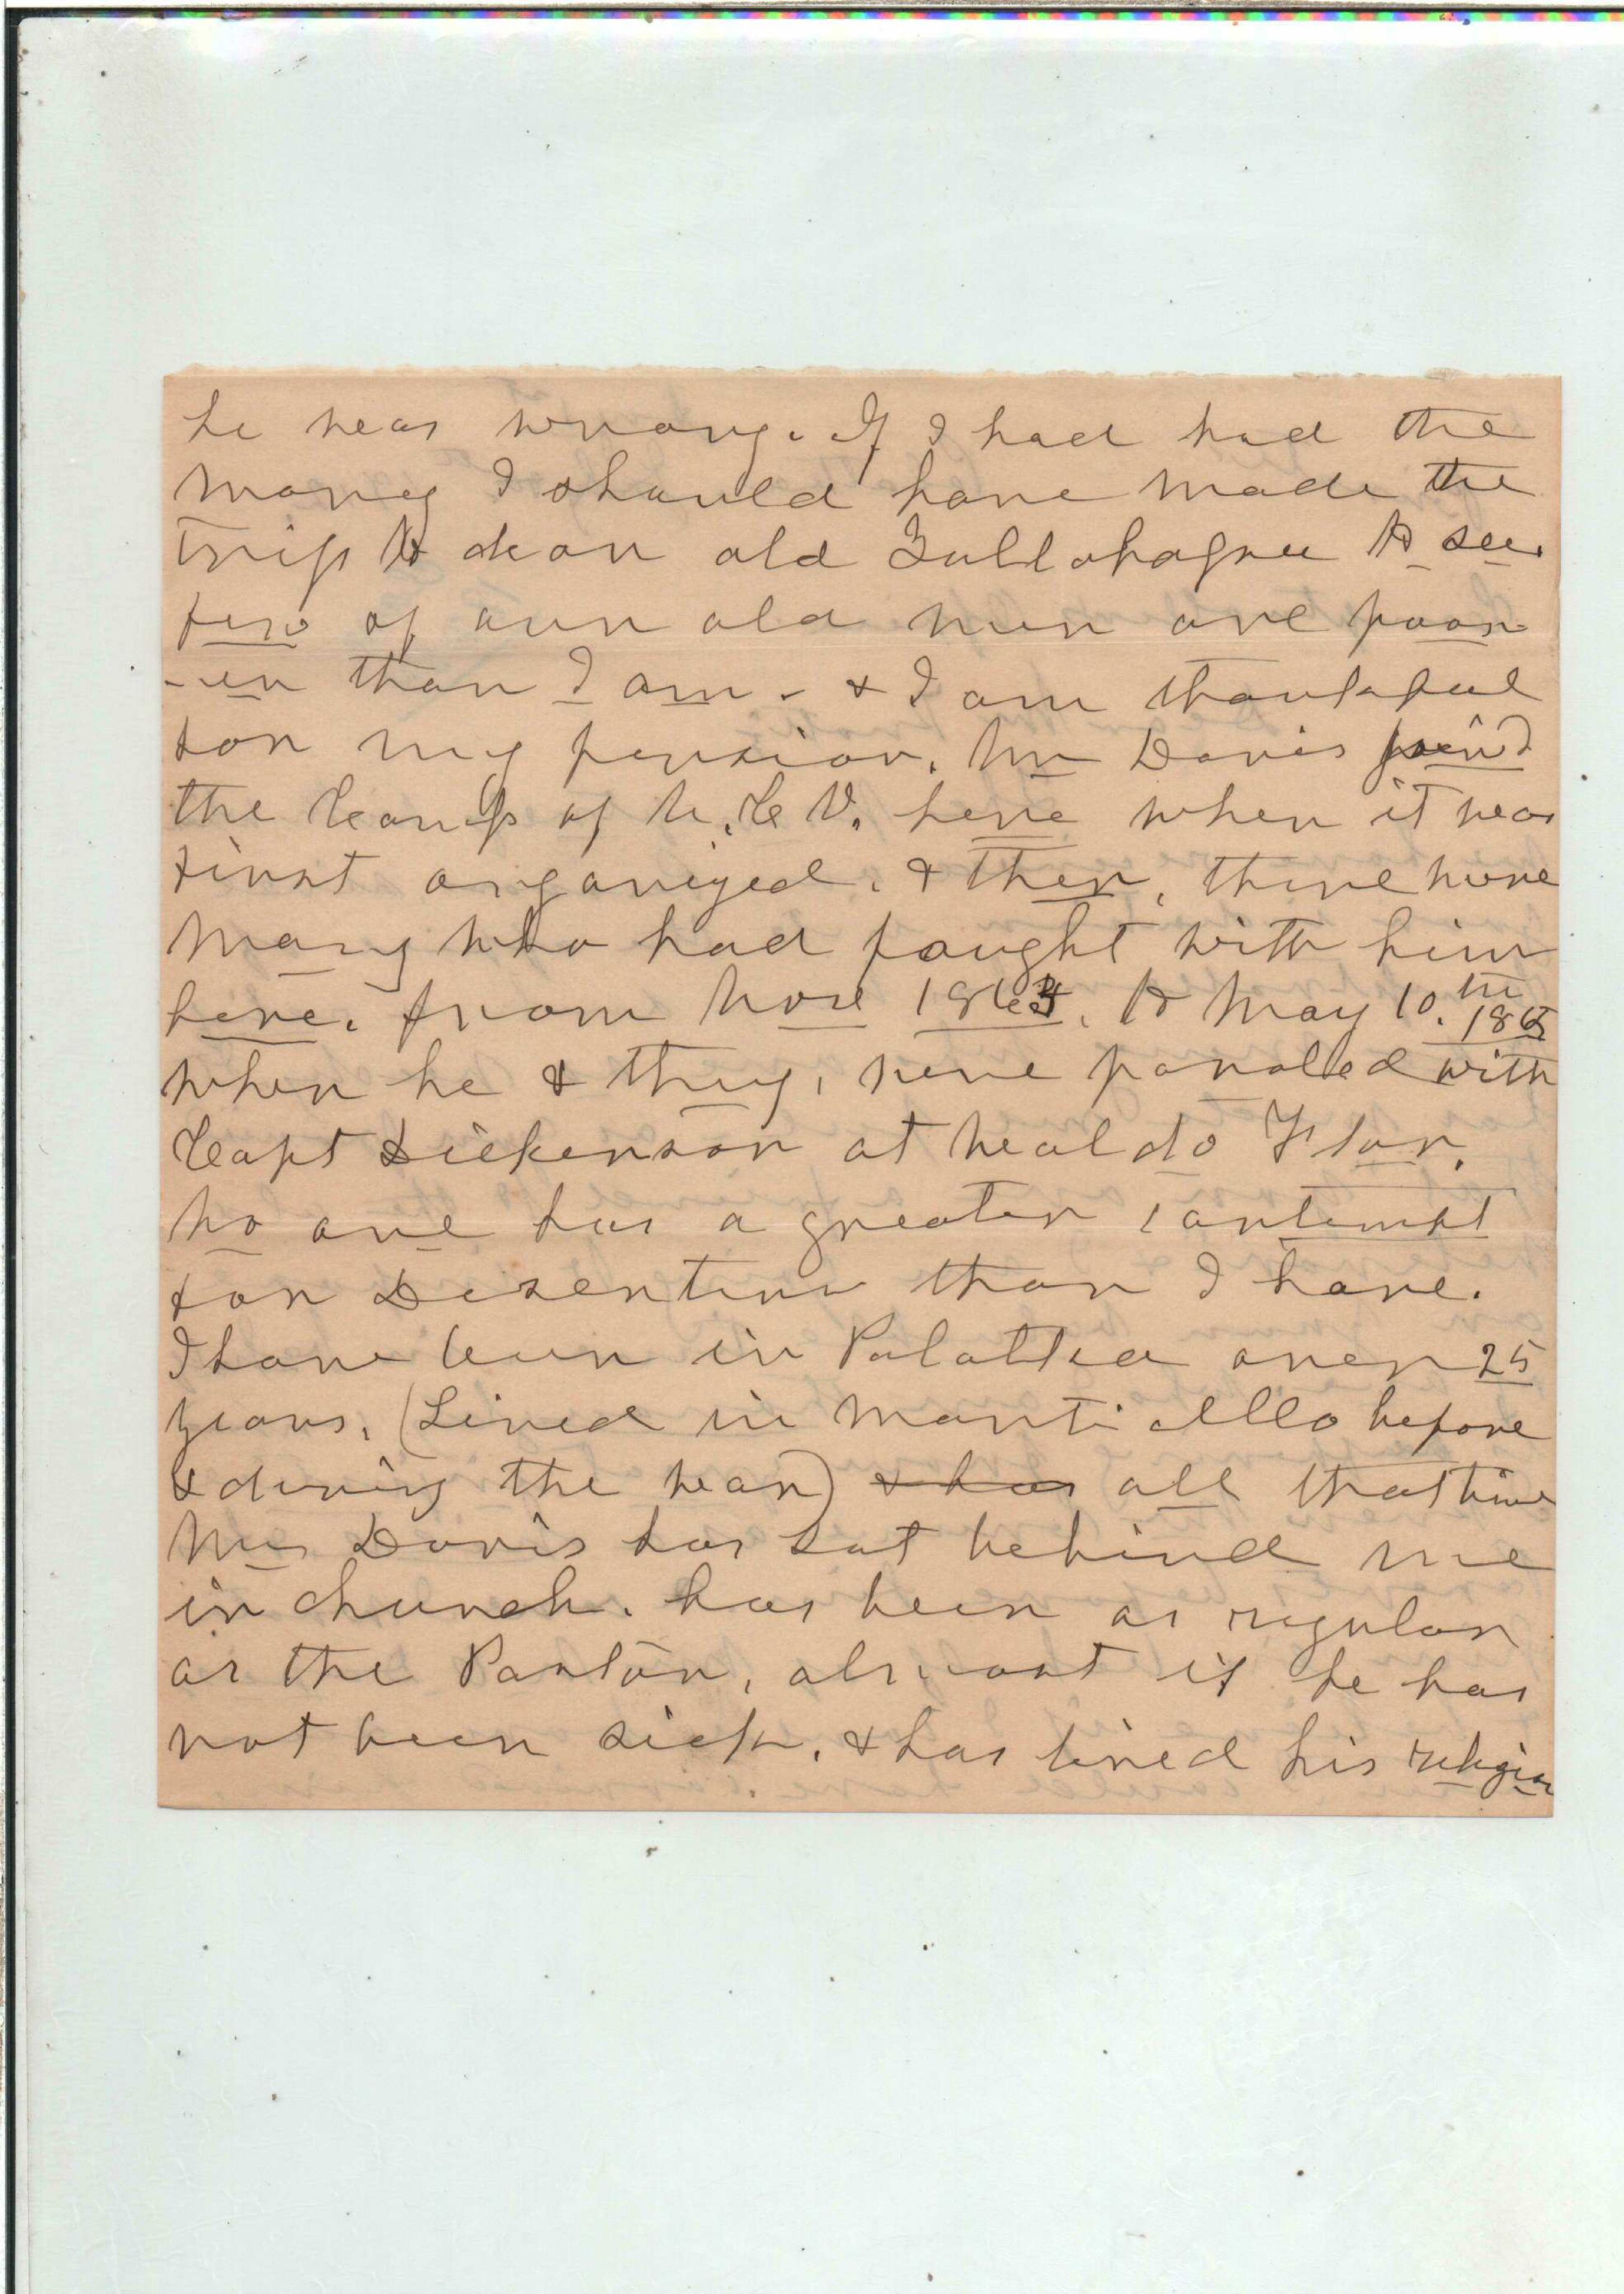 he was wrong. If I had had the
money I should have made the
trip to dear old Tallahassee to see.
few of our old men are poor-
-er than I am - & I am thankful
for my pension. Mr Davis join'd
the Camp of U.C.V. here when it was
first organized. & then, there were
many who had fought with him
here. from Nove 1863. to May 10.th 1865
when he & they, were paroled with
Capt Dickenson at Waldo Flor.
No one has a greater contempt
for Deserters than I have.
I have been in Palatka over 25
years. (Lived in Monticello before
& during the war) & has all that time
Mr Davis has sat behind me
in church. has been as regular
as the Pastor, almost if he has
not been sick. & has lived his religion